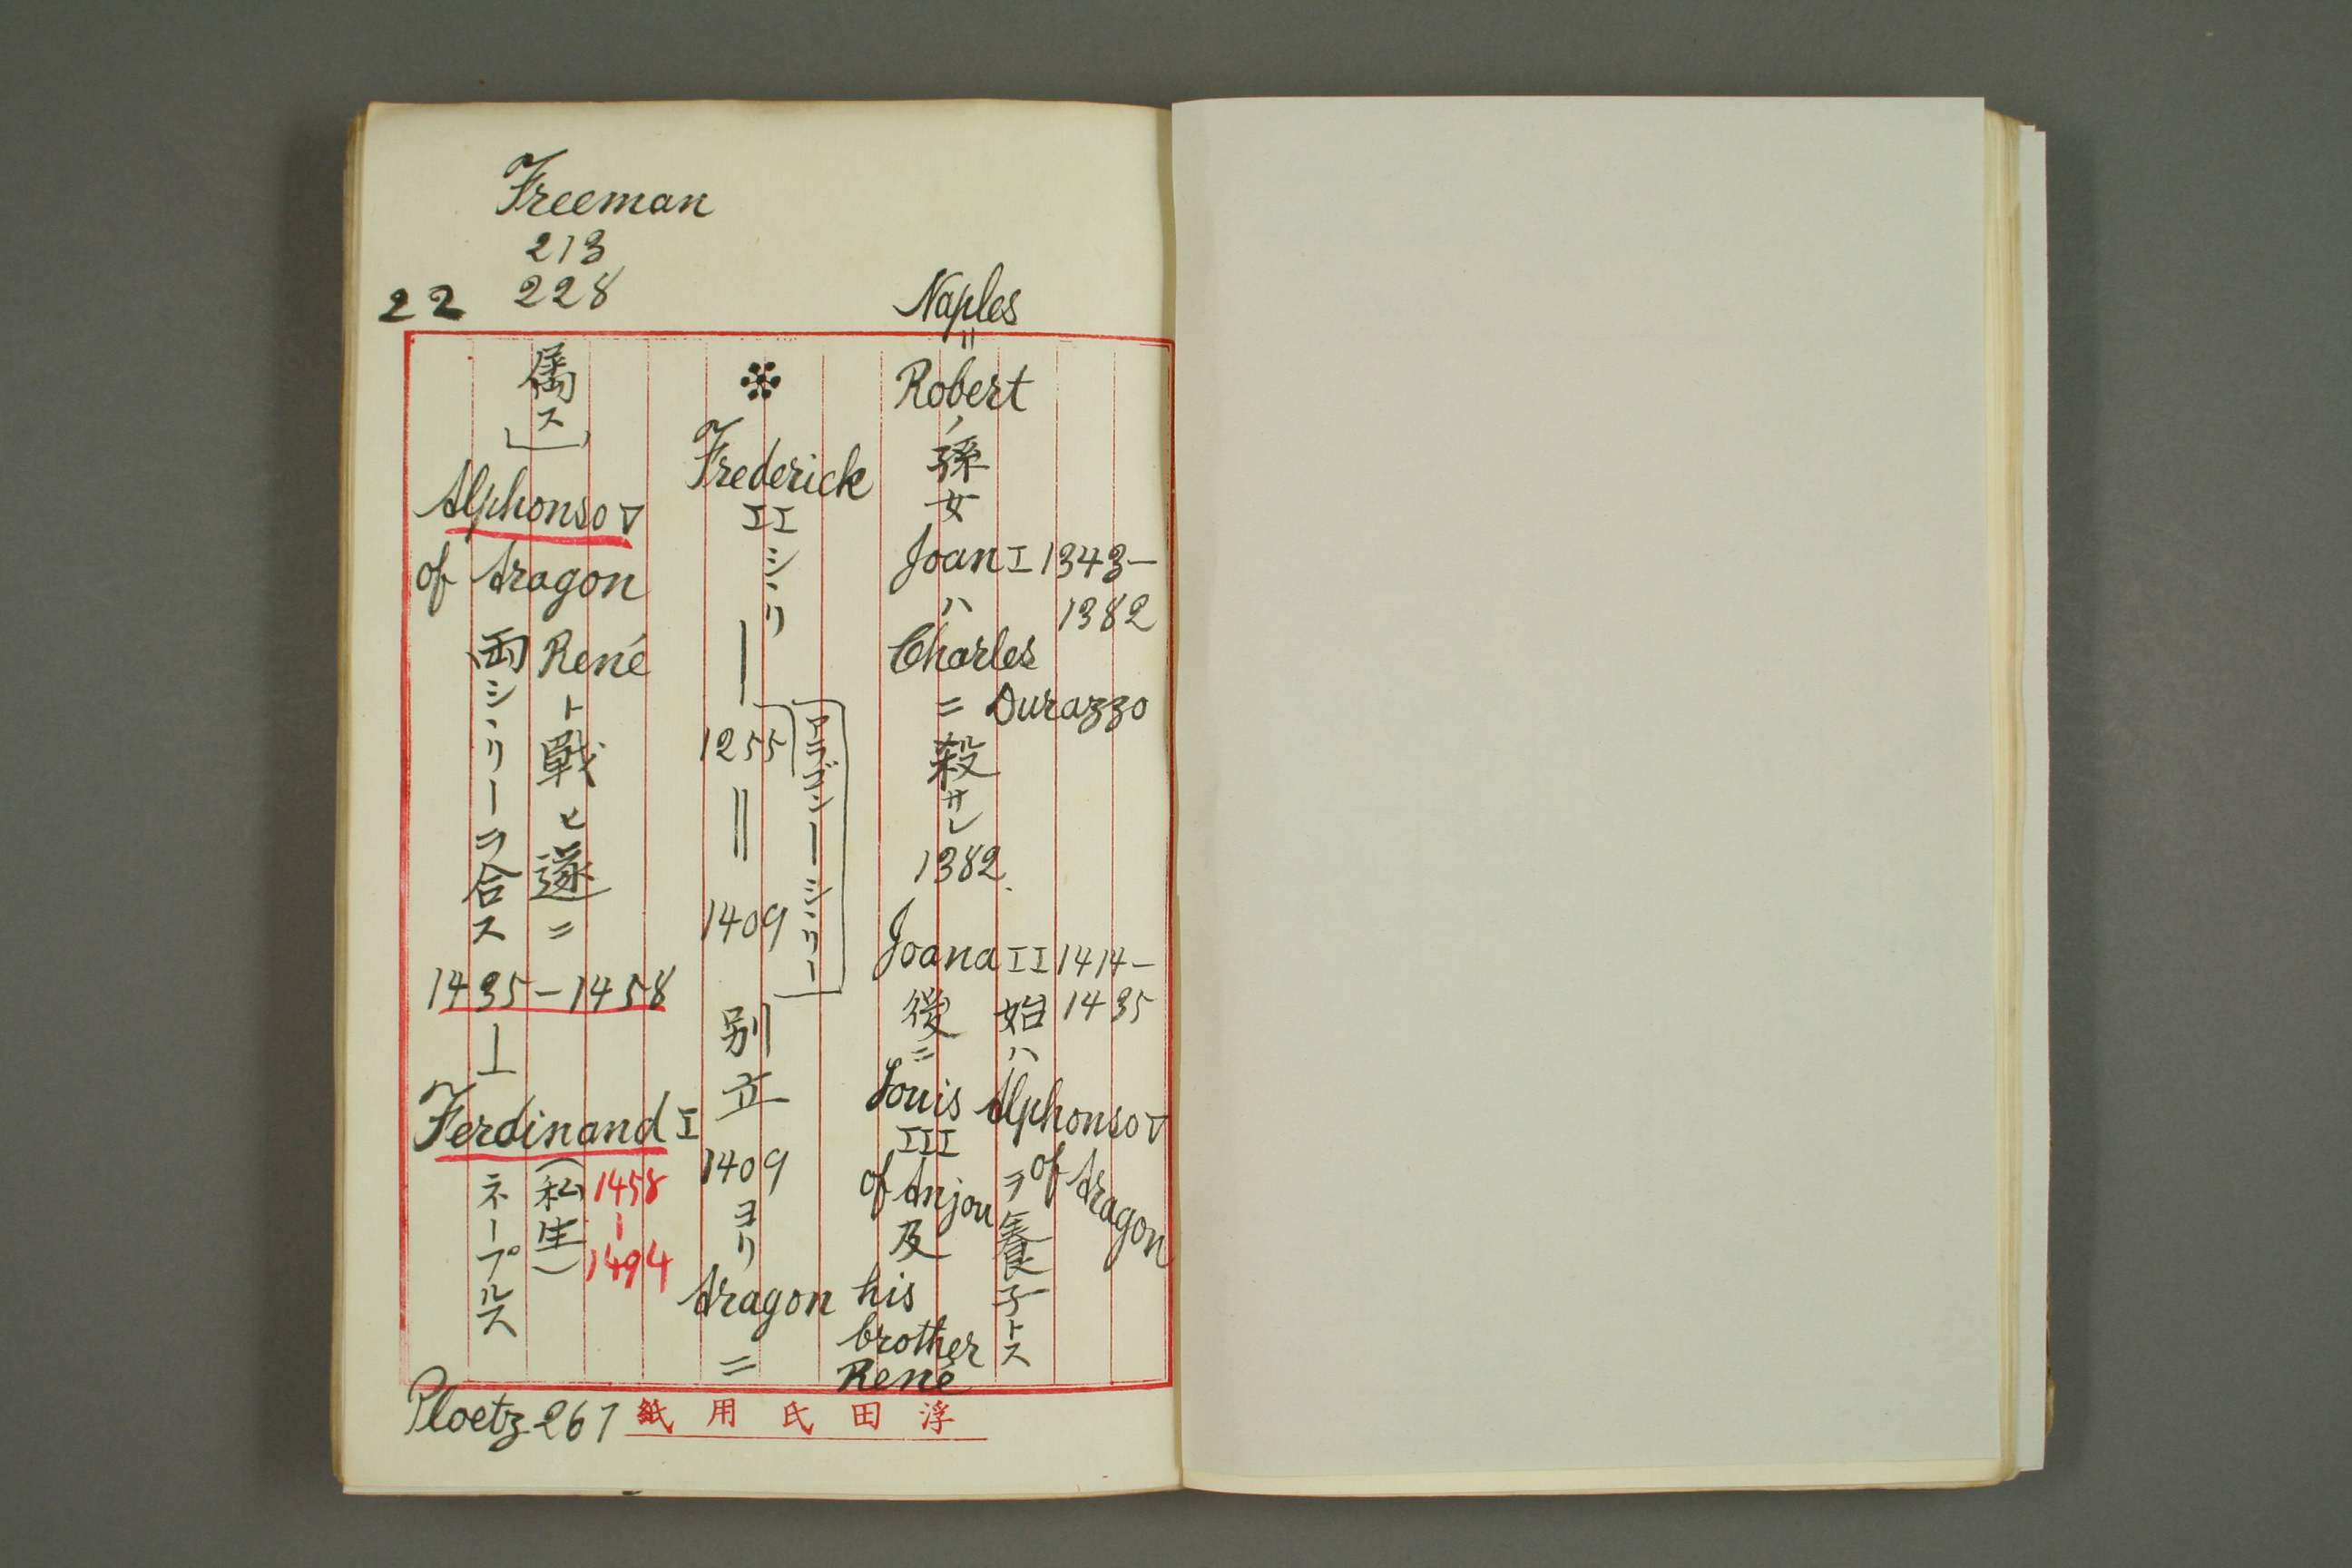 Freeman
213
228
22
Naples
〃
Robert
ノ孫女
Joan I 1343-
1382
ハ
Charles
Durazzo
ニ殺サレ
1382.
Joana II 1414-
1435
始ハ
Alphonso V
of Aragon
ヲ養子トス
後ニ
Louis
III
of Anjou
及
his
brother
René
Frederick
II
シヽリ
ー
1255
||
1409
アラゴンーシヽリー
別立
1409
ヨリ
Aragon
ニ
属ス
Alphonso V
of Aragon
René
ト戦ヒ遂ニ
両シヽリーヲ合ス
1435-1458
Ferdinand I
1458
-
1494
(私生)
ネープルス
Ploetz 267
浮田氏用紙